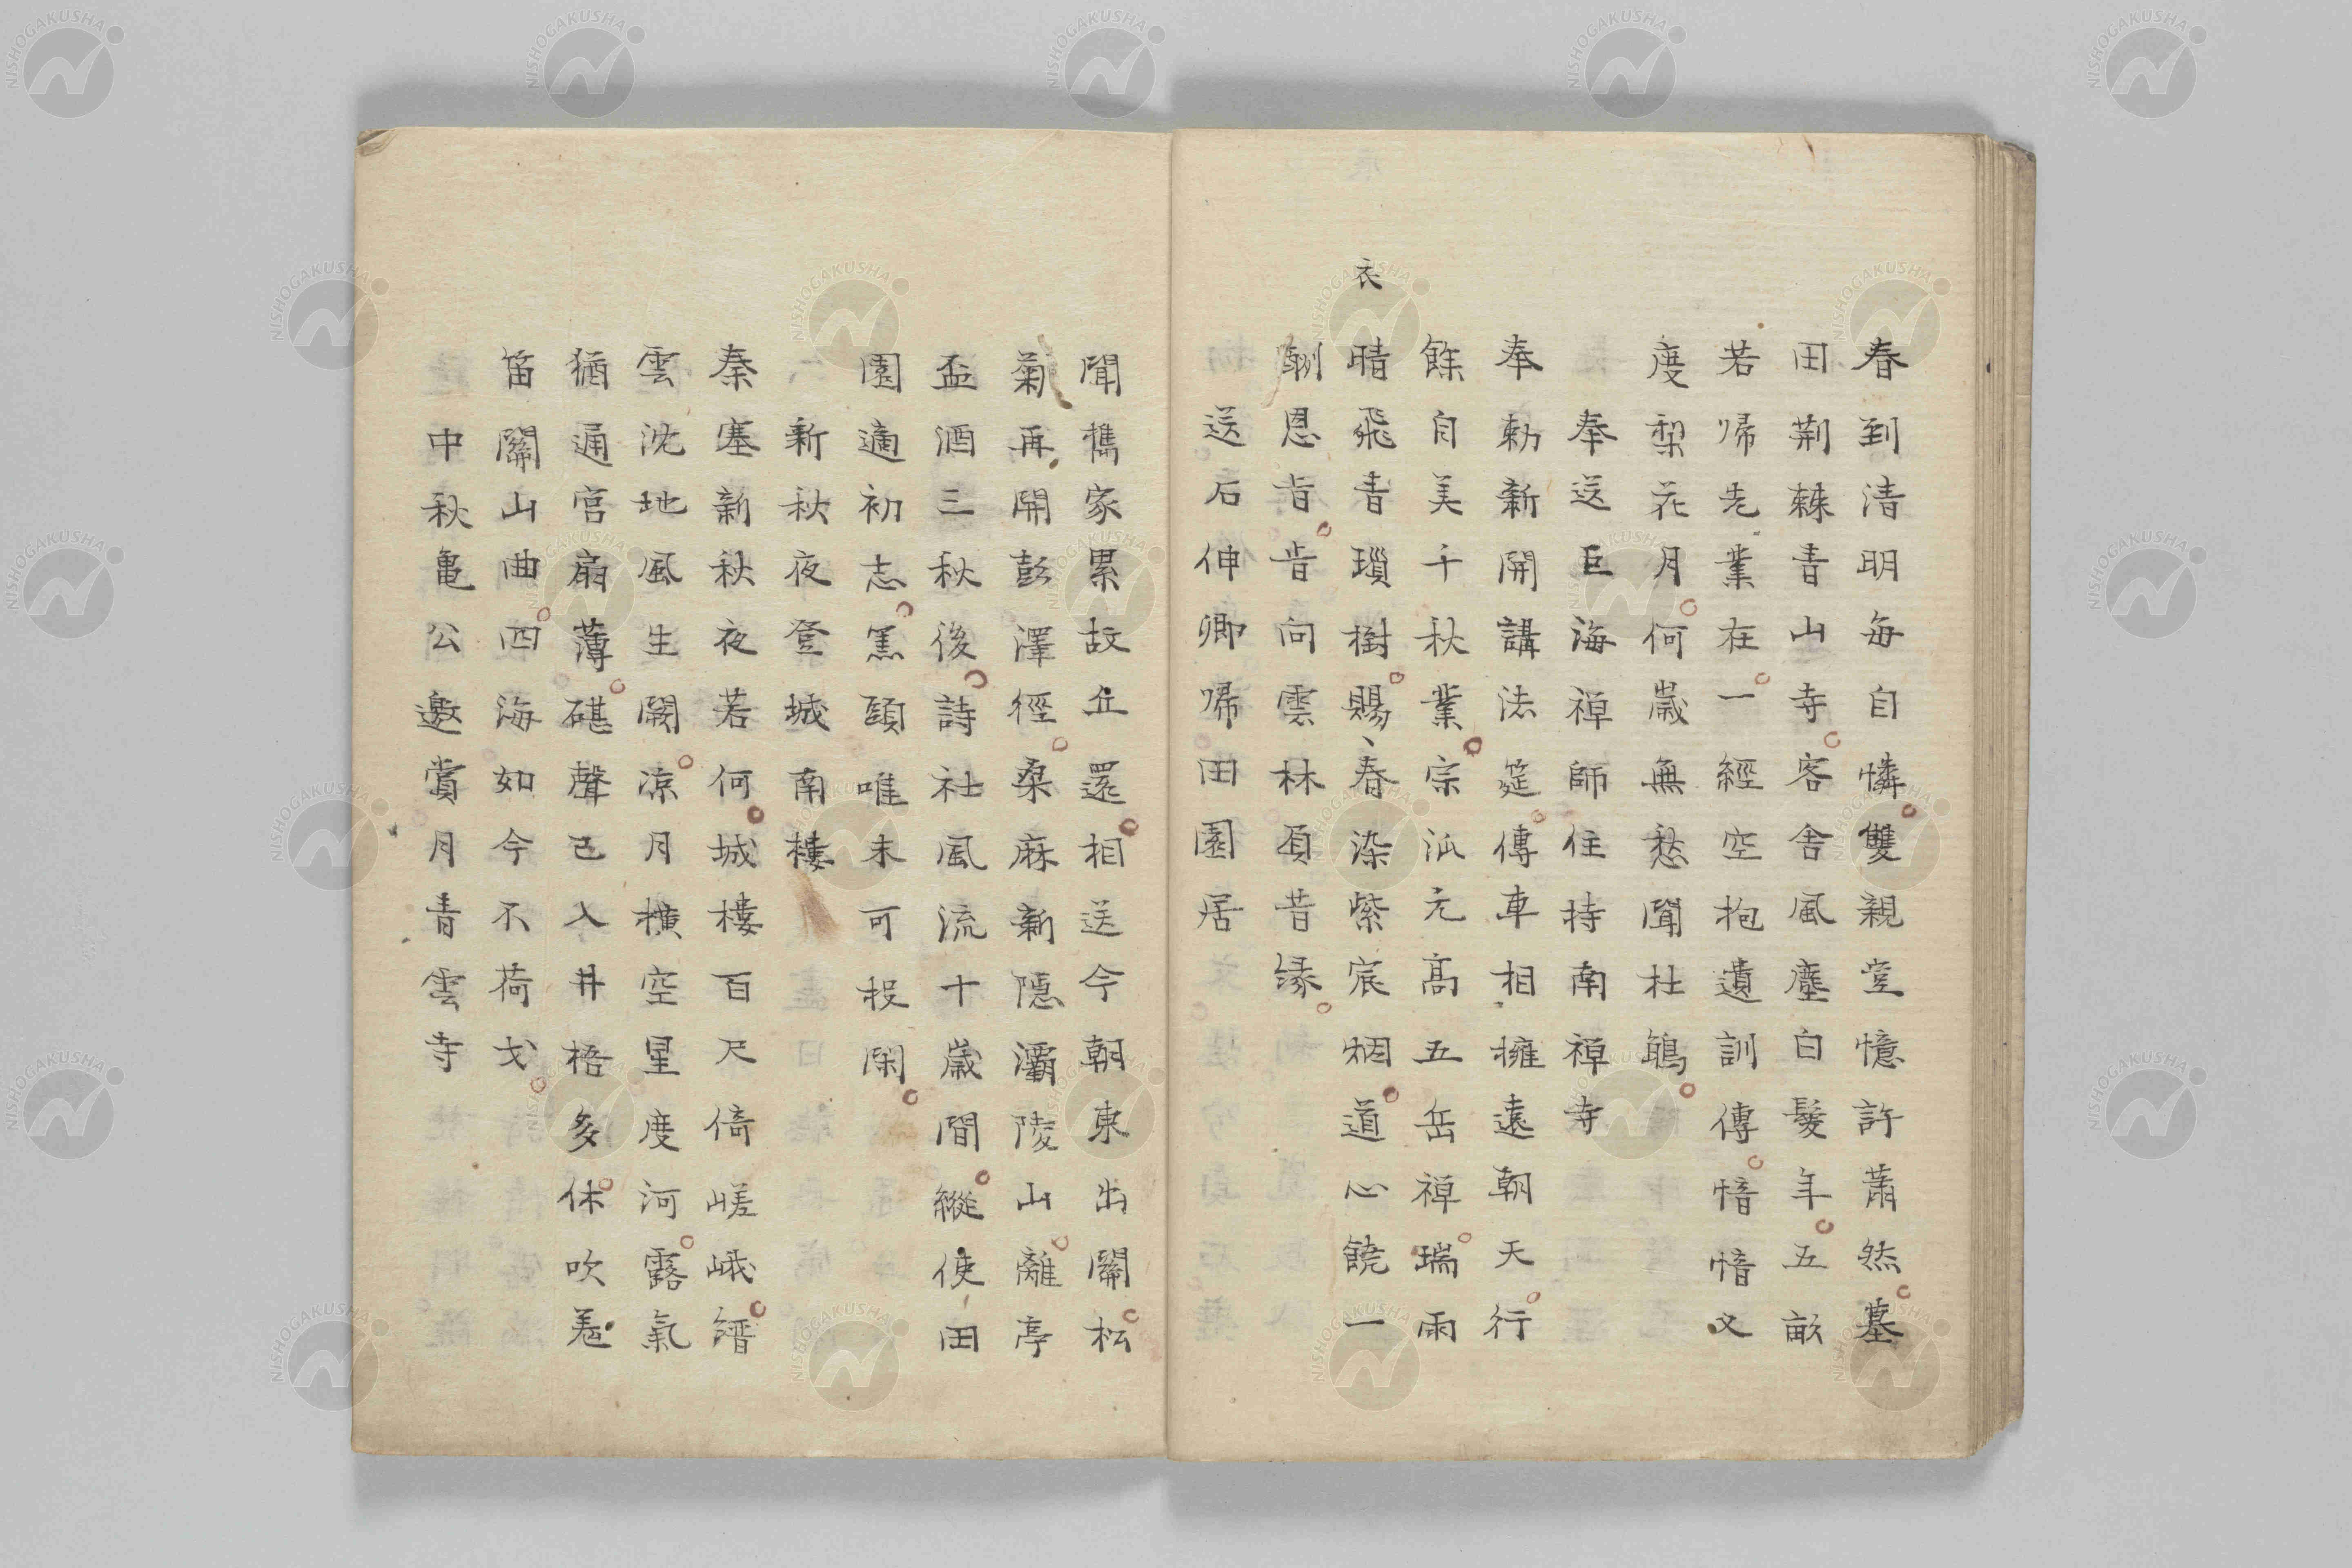 衣
春到清明每自憐雙親堂憶許蕭然墓
田荆棘青山寺客舍風塵白髮年五畝
若帰先業在一經空抱遺訓傳愔愔又
度梨花月何歳無愁聞杜鵑
奉送巨海禅師住持南禅寺
奉勅新開講法筵傳車相擁遠朝天行
餘自美千秋業宗泒元高五岳禅瑞雨
晴飛青瑣樹賜春染紫宸烟道心饒一
酬恩旹旹向雲林頁昔縁
送石伸卿帰田園居
聞檇家累故丘還相送今朝東出關松
菊再開彭澤徑桑麻新隠灞陵山離亭
盃酒三秋後詩社風流十歳間縱使田
園適初志篤頤唯未可投閑
新秋夜登城南樓
秦塞新秋夜若何城樓百尺倚嵯峨縉
雲沈地風生闕涼月横空星度河露氣
猶通宮扇薄碪聲已入井梧多休吹羗
笛關山曲四海如今不荷戈
中秋亀公邀賞月青雲寺
NISHOGAKUSHA